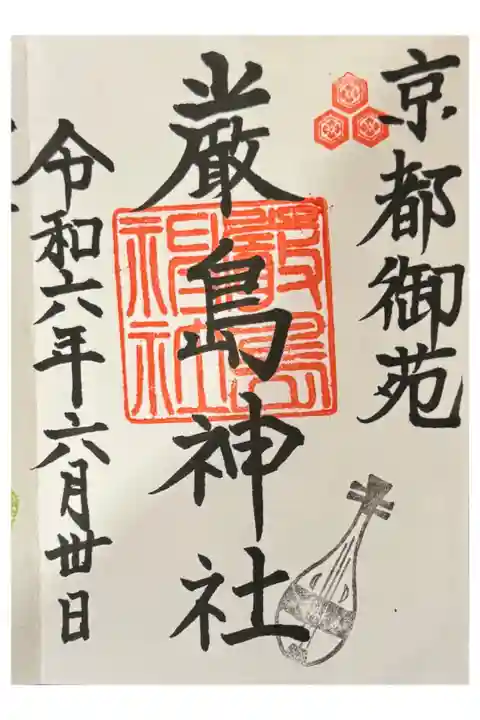 京都御苑
厳島神社
令和六年六月丗日
嚴島
神社